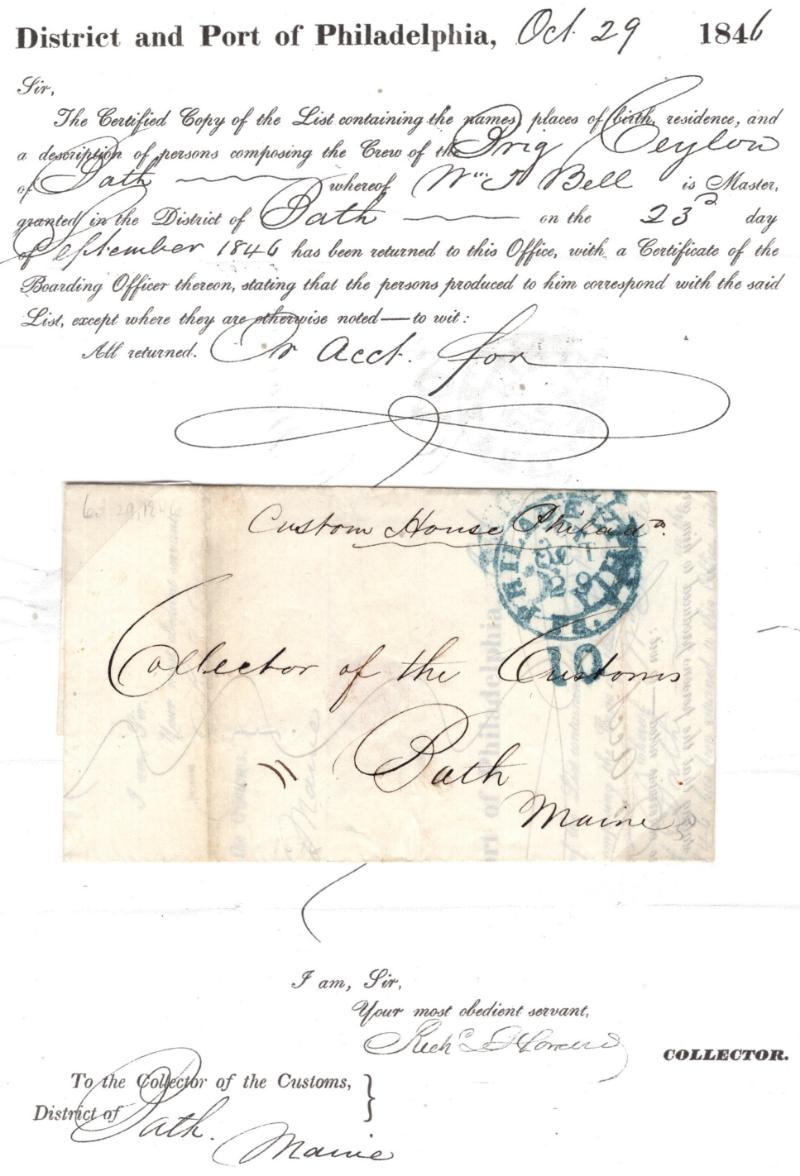 District and Port of Philadelphia, Oct 29 1846
Sir,
The Certified Copy of the List containing the names, places of birth, residence, and
a description of persons composing the Crew of the Brig Ceylon
of Bath whereof Wm Bell is Master,
granted in the District of Bath on the 23d day
of September 1846 has been returned to this Office, with a Certificate of the
Boarding Officer thereon, stating that the persons produced to him correspond with the said
List, except where they are otherwise noted—to wit:
All returned. Or Acct. for
Oct 29, 1846
Custom House Philada.
PHILADELPHIA
OCT
29
Pa.
10
Collector of the Customs
Bath
Maine
I am, Sir,
Your most obedient servant,
Richd
COLLECTOR.
To the Collector of the Customs,
District of Bath.
Maine